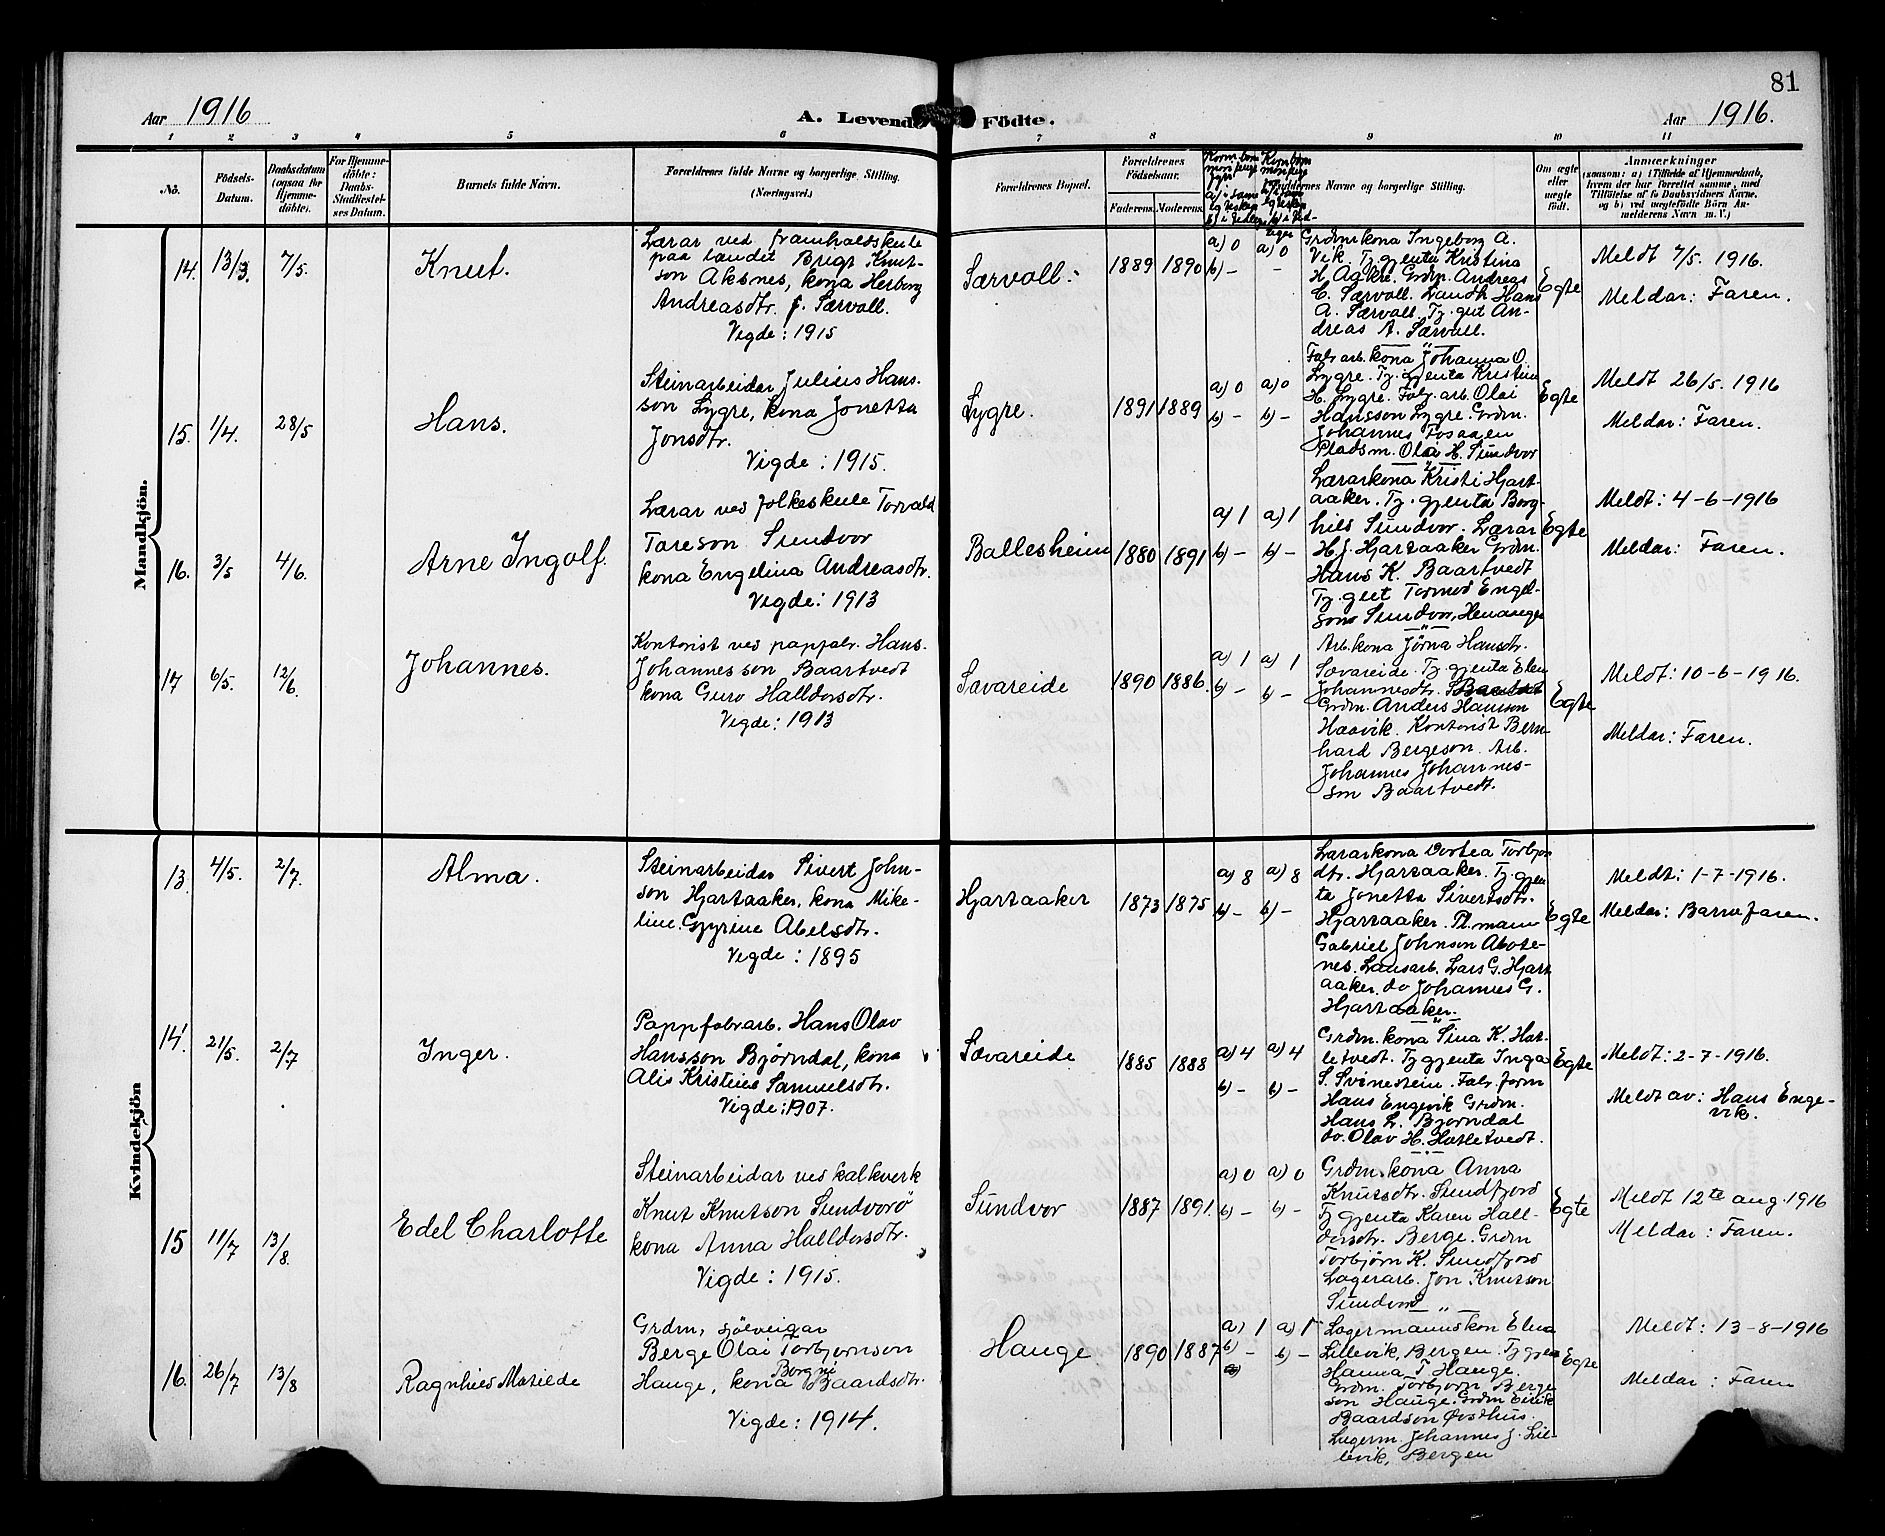 81
Aar 1916
A. Levende Födte.
Aar 1916.
1 2 3 4 5 6 7 8 9 10 11
No.
Födsels-
Datum.
Daabsdatum
(ogsaa for
Hjemme-
döbte).
For Hjemme-
döbte:
Daabs-
Stadfæstel-
ses Datum.
Barnets fulde Navn.
Forældrenes fulde Navne og borgerlige Stilling.
(Næringsvei.)
Forældrenes Bopæl.
Forældrenes
Födselsaar.
Faderens. Moderens.
Faddernes Navne og borgerlige Stilling.
Om ægte
eller
uægte
födt.
Anmærkninger
(saasom: a) i Tilfælde af Hjemmedaab,
hvem der har forrettet samme, med
Tilföielse af to Daabsvidners Navne,
og b) ved uægtefödte Börn An-
melderens Navn m. V.)
Mandkjön.
14. 13/3. 7/5.
Knut.
Lærar ved framhaldskule
paa landet Brigt Knut-
son Aksnes, kona Herborg
Andreasdtr. f. Særvoll.
Vigde: 1915
Særvoll.
1889 1890
a) 0 a) 0
b) – –
Grdmskona Ingeborg A.
Vik. Tj. gjenta Kristina
H. Aakre. Grdm. Andreas
C. Særvoll. Landh. Hans
A. Særvoll. Tj. gut An-
dreas A. Særvoll.
Egte
Meldt 7/5. 1916.
Meldar: Faren.
15. 1/4. 28/5
Hans.
Steinarbeidar Julius Hans-
son Lygre, kona Jonetta
Jonsdtr.
Vigde: 1915.
Lygre.
1891 1889
a) 0 a) 0
b) – b) –
Fabr. arb. kona Johanna O.
Lygre. Tj. gjenta Kristine
H. Lygre. Fabr. arb. Olai
Hansson Lygre. Grdm.
Johannes Fosaaen
Pladsm. Olai H. Sundvor
Egte
Meldt 26/5. 1916
Meldar: Faren.
16. 3/5 4/6.
Arne Ingolf.
Lærar ved folkeskule Torvald
Tareson Sundvor
kona Engelina Andreasdtr.
Vigde: 1913
Ballesheim
1880 1891
a) 1 a) 1
b) – b) –
Lærarkona Kristi Hjart-
aaker. Tj. gjenta Borg-
hild Sundvor. Lærar
H. J. Hjartaaker Grdm.
Hans K. Baartvedt
Tj. gut Tormod Engel-
sson Sundvor,
Egte
Meldt: 4-6-1916
Meldar: Faren.
17 6/5. 12/6.
Johannes.
Kontorist ved pappfabr. Hans
Johannesson Baartvedt
kona Guro Halldorsdtr.
Vigde: 1913
Sævareide
1890 1886.
a) 1 a) 1
b) – b) –
Arb. kona Jörna Hansdtr.
Sævareide. Tj gjenta Elen
Johannesdtr. Baartvedt
Grdm. Anders Hanson
Haavik. Kontorist Bern-
hard Bergeson. Arb.
Johannes Johannes-
son Baartvedt.
Egte
Meldt: 10-6-1916.
Meldar: Faren.
Kvindekjön
13. 4/5. 2/7.
Alma.
Steinarbeidar Sivert John-
son Hjartaaker, kona Mike-
line Gyrine Abelsdtr.
Vigde: 1895
Hjartaaker
1873 1875
a) 8 a) 8
b) – b) –
Lærarkona Dortea Torbjørns
dtr. Hjartaaker. Tj. gjen
ta Jonetta Sivertsdtr.
Hjartaaker. Pl. mann
Gabriel Johnson Abote-
nes. Landarb. Lars G. Hjart
aaker. do Johannes G.
Hjartaaker.
Egte
Meldt: 1-7-1916.
Meldar: Barnefaren.
14. 21/5. 2/7
Inger.
Pappfabr arb. Hans Olav
Hansson Bjørndal, kona
Alis Kristine Samuelsdtr.
Vigde: 1907.
Sævareide
1885 1888
a) 4 a) 4
b) – b) –
Grdm. kona Sina K. Hat-
letvedt. Tj gjenta Inga
S. Svinestein. Fabr. form
Hans Engevik Grdm.
Hans L. Bjørndal
do. Olav H. Hatletvedt.
Egte
Meldt: 2-7-1916.
Meldt av: Hans Enge-
vik.
15 11/7 13/8.
Edel Charlotte
Steinarbeidar ved kalkverk
Knut Knutson Sundvorö
kona Anna Halldorsdtr.
Vigde: 1915.
Sundvor
1887 1891.
a) 0 a) 0
b) – b) –
Grdm. kona Anna
Knutsdtr. Sundfjord
Tj gjenta Karen Hall-
dorsdtr. Berge. Grdm
Torbjørn K. Sundfjord
Lagerarb. Jon Knutson
Sundvor
Egte
Meldt 12te aug. 1916
Meldar: Faren.
16. 26/7 13/8
Ragnhild Matilde
Grdm, sjölveigar
Berge Olai Torbjornson
Hauge, kona Borgni Baardsdtr.
Vigde: 1914.
Hauge.
1890 1887
a) 1 a) 1
b) – b) –
Lagermannskon Elna
Lillevik, Bergen. Tj gjenta
Hanna T. Hauge.
Grdm. Torbjørn Berge
son Hauge. Grdm Eirik
Baardson Øvsthus.
Lagerm. Johannes J. Lil-
levik, Bergen
Egte
Meldt: 13-8-1916
Meldar: Faren